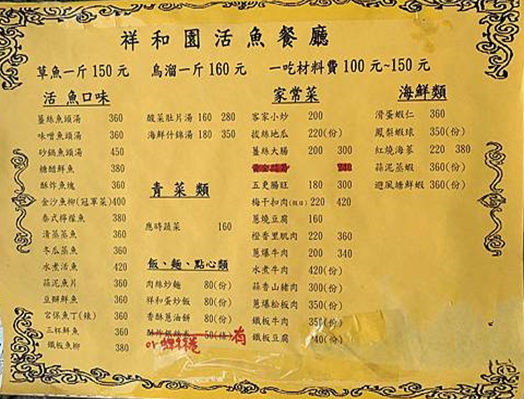 祥和園活魚餐廳
草魚一斤150元 烏溜一斤160元 一吃材料費100元~150元
活魚口味
薑絲魚頭湯 360
味噌魚頭湯 360
砂鍋魚頭湯 450
糖醋鮮魚 380
酥炸魚塊 360
金沙魚柳(冠軍菜)400
泰式檸檬魚 380
清蒸蒸魚 360
冬瓜蒸魚 360
水煮活魚 420
蒜泥魚片 360
豆瓣鮮魚 360
宮保魚丁(辣) 360
三杯鮮魚 360
鐵板魚柳 380
酸菜肚片湯 160 280
海鮮什錦湯 180 350
青菜類
應時蔬菜 160
飯、麵、點心類
肉絲炒麵 80(份)
祥和蛋炒飯 80(份)
香酥蔥油餅 80(份)
50(條)
家常菜
客家小炒 200
拔絲地瓜 220(份)
薑絲大腸 200 300
五更腸旺 180 300
梅干扣肉 220 420
蔥燒豆腐 160
橙香里肌肉 220 360
蔥爆牛肉 220 340
水煮牛肉 420(份)
蒜香山豬肉 300(份)
蔥爆松板肉 350(份)
鐵板牛肉 350(份)
鐵板豆腐 40(份)
海鮮類
滑蛋蝦仁 360
鳳梨蝦球 350(份)
紅燒海蔘 220 380
蒜泥蒸蝦 360(份)
避風塘鮮蝦 360(份)